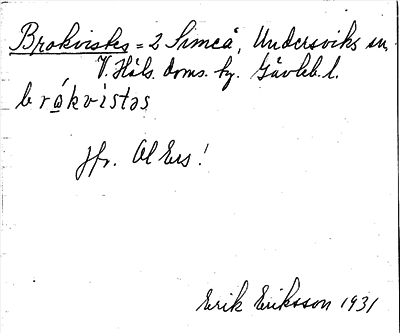 Brokvisks = 2 Simeå, Undersviks sn.
V. Häls. doms. hy. Gävleb. l.
brákvistəs
jfr. Ol Ers!
Erik Eriksson 1931